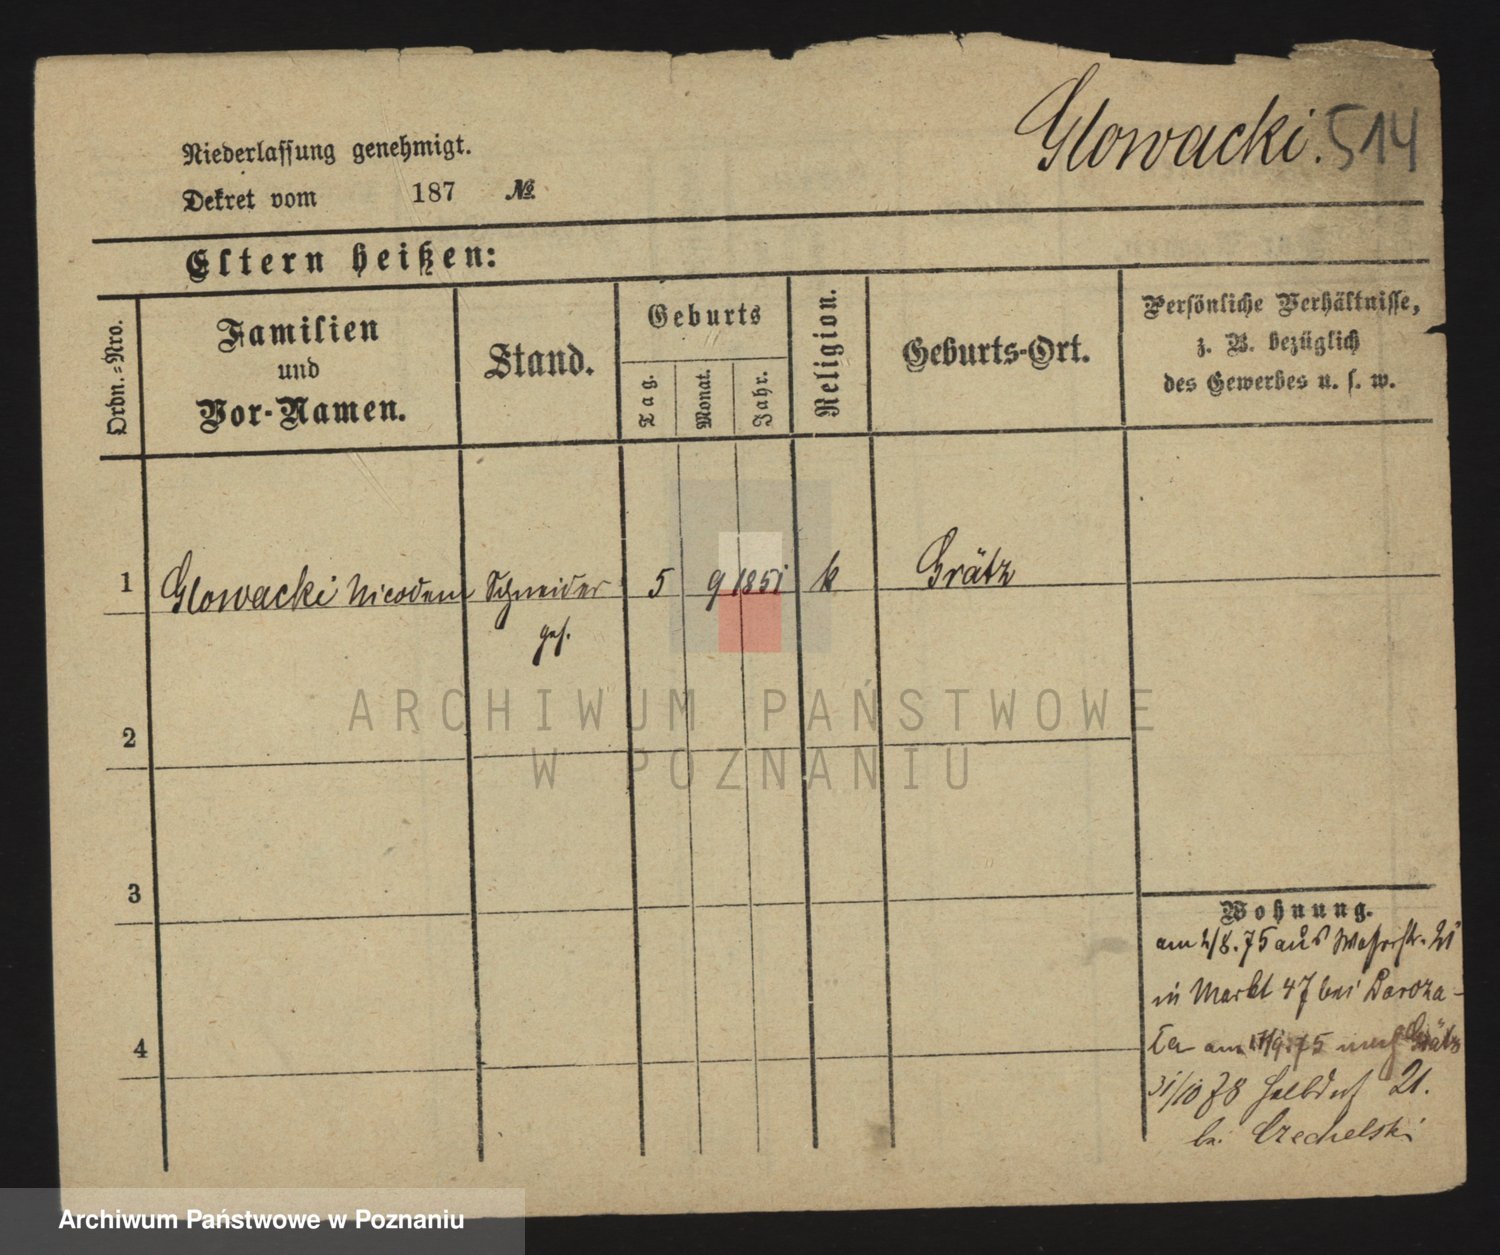 Glowacki. 514
Niederlassung genehmigt.
Dekret vom 187 №
Eltern heißen:
Ordn.-Nro.
Familien
und
Vor-Namen.
Stand.
Geburts
Tag.
Monat.
Jahr.
Religion.
Geburts-Ort.
Persönliche Verhältnisse,
z. B. bezüglich
des Gewerbes u. s. w.
1 Glowacki Nicodem Schneider 5 9 1851 k Grätz
ges.
2
3
4
Wohnung.
am 2/8.75 aus Wasserstr. 21
in Markt 47 bei Doroza-
la am 17/9.75 nach Grätz
31/10 78 Halbdorf 21.
bei Czechelski
ARCHIWUM PAŃSTWOWE
W POZNANIU
Archiwum Państwowe w Poznaniu